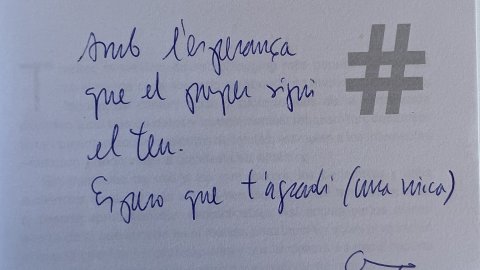 Amb l'esperança #
que el proper sigui
el teu.
Espero que t'agradi (una mica)